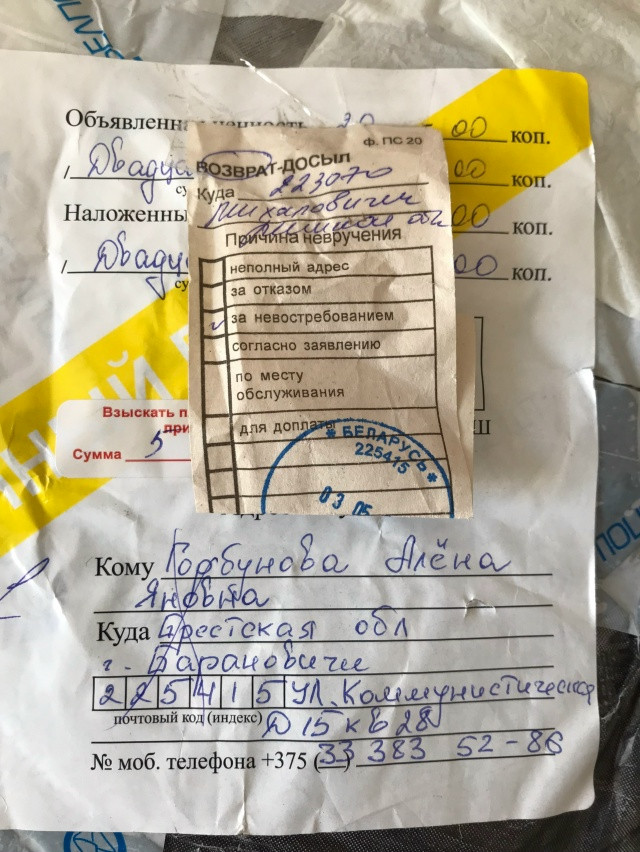 Объявленная ценность 20 00 коп.
/ Двадца 00 коп.
Наложенны 00 коп.
/ Двадца 00 коп.
ф. ПС 20
ВОЗВРАТ-ДОСЫЛ
Куда 223070
Михановичи
Минская об
Причина невручения
неполный адрес
за отказом
за невостребованием
согласно заявлению
по месту
обслуживания
для доплаты
* БЕЛАРУСЬ *
225415
03 05
Взыскать п
при
Сумма 5
Кому Горбунова Алёна
Куда Брестская обл
г. Барановичи
225415 ул. Коммунистическая
почтовый код (индекс) Д 15 кв 28
№ моб. телефона +375 (33) 383 52-86